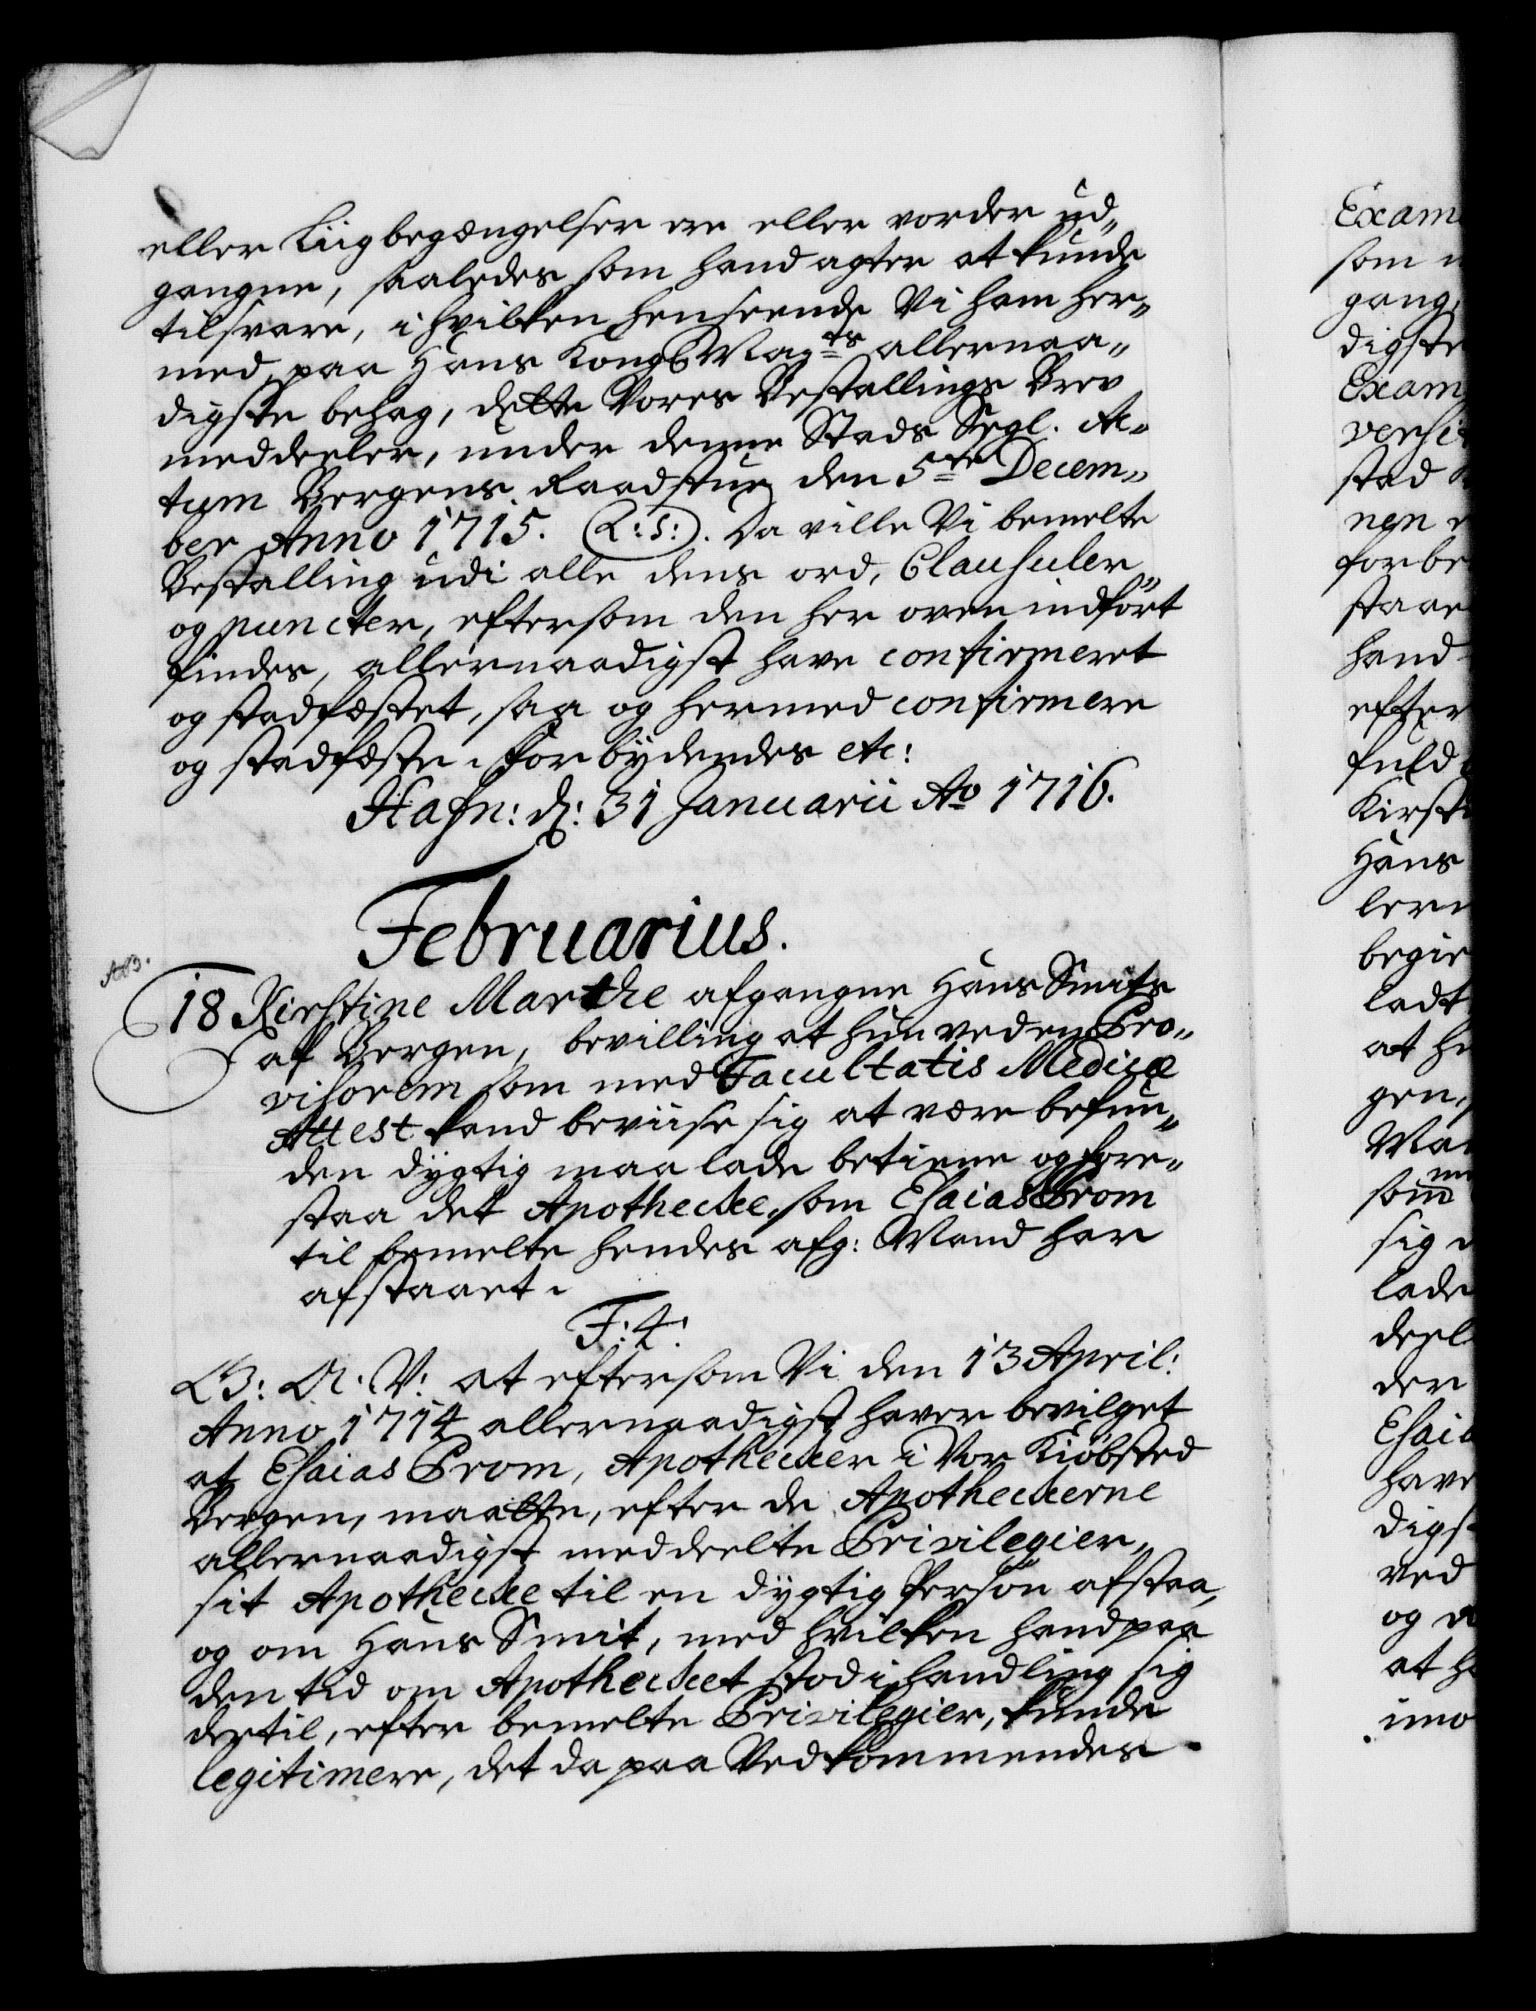 eller Liigbegængelser ere eller vorder ud„
gangne, saaledes som hand agter at kunde
tilsvare, i hvilken henseende Vi ham her„
med, paa Hans Kongl Mayts allernaa„
digste behag, dette Vores Bestallings Brev
meddeeler, under denne Stads Segl. Ac„
tum Bergens Raadstue den 5te Decem„
ber Anno 1715. (L:S:). Da ville Vi bemelte
Bestalling udi alle dens ord, Clausuler
og puncter, eftersom den her oven indført
findes, allernaadigst have confirmeret
og stadfæstet, saa og hermed confirmere
og stadfæste. Forbydendes etc:
Hafn: d: 31 Januarii Ao 1716.
Februarius.
18 Kirstine Marthe afgangne Hans Smits
af Bergen, bevilling at hun ved en Pro„
visorem som med Facultatis Medicæ
Attest kand beviise sig at være befun„
den dygtig maa lade betiene og fore„
staa det Apothecke, som Esaias Prom
til bemelte hendes afg: Mand har
afstaaet.
F: 4:
G: A: V: at eftersom Vi den 13 April:
Anno 1714 allernaadigst haver bevilget
at Esaias Prom, Apothecker i Vor Kiøbsted
Bergen, maatte, efter de Apotheckerne
allernaadigst meddeelte Privilegier,
sit Apothecke til en dygtig Person afstaa,
og om Hans Smit, med hvilken hand paa
den tid om Apothecket stod i handling sig
dertil, efter bemelte Privilegier, kunde
legitimere, det da paa Vedkommendes
Exam
som
gang
digste
Exam
versit
stad
nen
forbe
staae
hand
efter
fuld
Kirsti
Hans
lern
begie
ladt
at
gen,
Man
som
sig
lade
deel
der
Esaia
have
digst
ved
og
at
imo